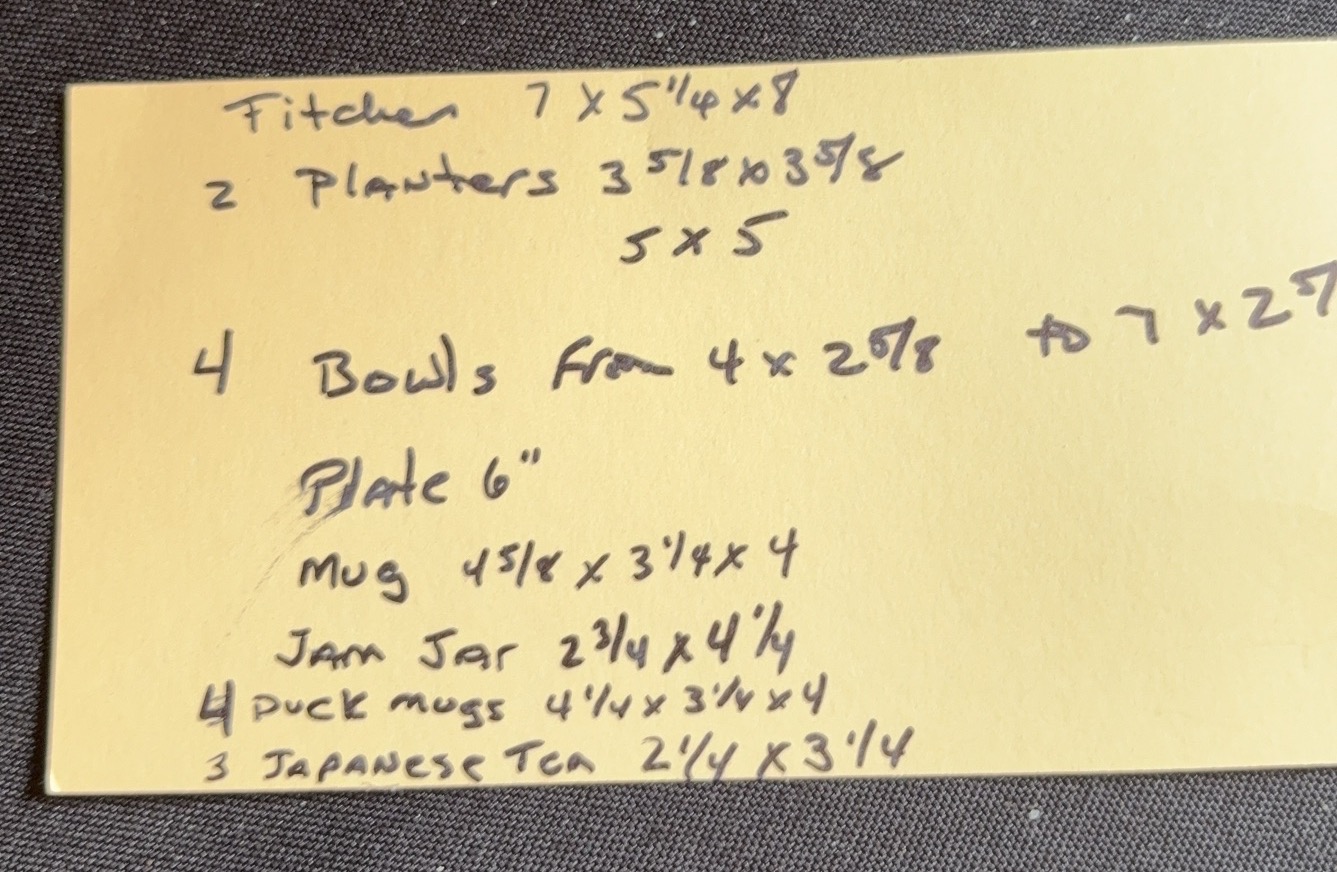 Pitcher 7 x 5 1/4 x 8
2 Planters 3 5/8 x 3 5/8
5 x 5
4 Bowls from 4 x 2 5/8 to 7 x 2 5/
Plate 6"
Mug 4 5/8 x 3 1/4 x 4
JAM JAr 2 3/4 x 4 1/4
4 Duck mugs 4 1/4 x 3 1/4 x 4
3 JAPANese Tea 2 1/4 x 3 1/4